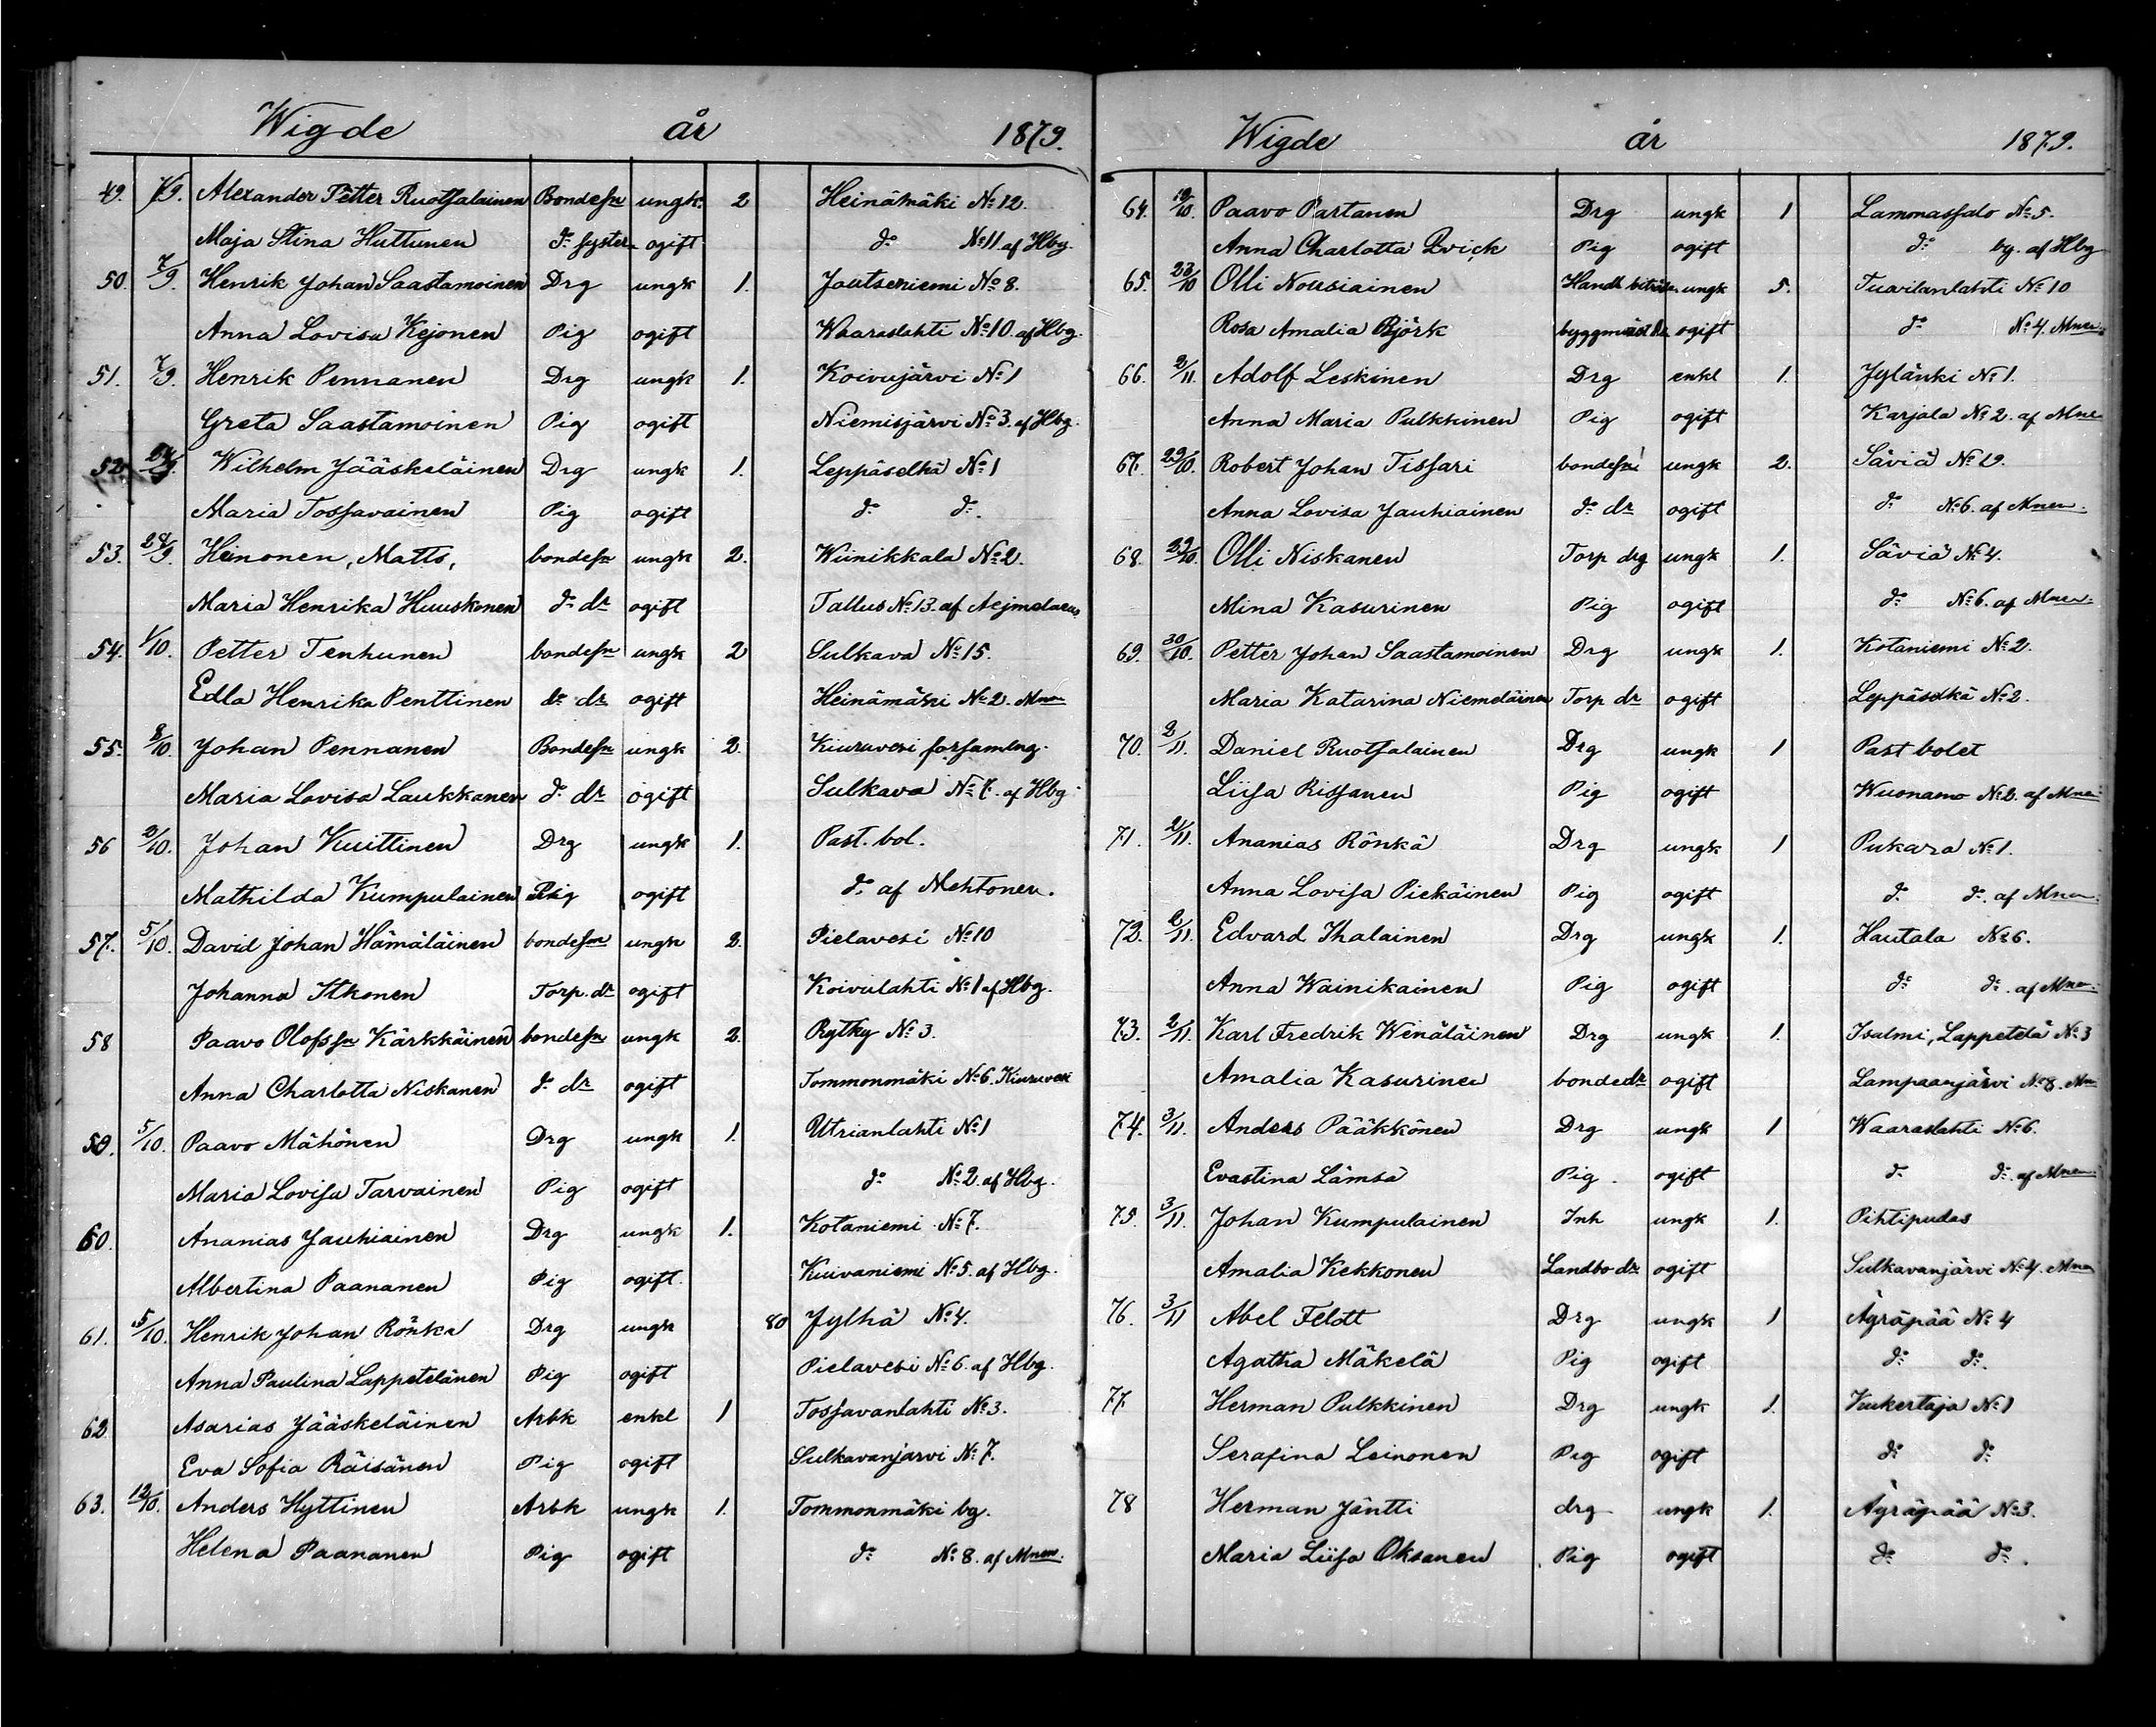 Wigde år 1879.
49. 7/9. Alexander Petter Ruotsalainen Bondesn ungk. 2 Heinämäki No 12.
Maja Stina Huttunen do syster ogift do No 11 af Hbg.
50. 7/9. Henrik Johan Saastamoinen Drg ungk 1. Joutseniemi No 8.
Anna Lovisa Kejonen Pig ogift Waaraslahti No 10 af Hbg.
51. 7/9. Henrik Pennanen Drg ungk 1. Koivujärvi No 1
Greta Saastamoinen Pig ogift Niemisjärvi No 3. af Hbg.
52. Wilhelm Jääskeläinen Drg ungk 1. Leppäselkä No 1
Maria Tossavainen Pig ogift do do.
53. 28/9. Heinonen, Matts, bondesn ungk 2. Wiinikkala No 2.
Maria Henrika Huuskonen do dr ogift Tallus No 13. af Aejmelaeus
54. 1/10. Petter Tenhunen bondesn ungk 2 Sulkava No 15.
Edla Henrika Penttinen do dr ogift Heinämäki No 2. Mnen
55. 8/10. Johan Pennanen Bondesn ungk 2. Kiuruvesi forsamlng.
Maria Lovisa Laukkanen do dr ogift Sulkava No 7. af Hbg.
56 2/10. Johan Kuittinen Drg ungk 1. Past. bol.
Mathilda Kumpulainen Pig ogift do af Mehtonen.
57. 5/10. David Johan Hämäläinen bondesn ungk 2. Pielavesi No 10
Johanna Itkonen Torp. dr ogift Koivulahti No 1 af Hbg.
58 Paavo Olofssn Kärkkäinen bondesn ungk 2. Rytky No 3.
Anna Charlotta Niskanen do dr ogift Tommonmäki No 6. Kiuruvesi
59. 5/10. Paavo Mähönen Drg ungk 1. Utrianlahti No 1
Maria Lovisa Tarvainen Pig ogift do No 2. af Hbg.
60. Ananias Jauhiainen Drg ungk 1. Kotaniemi No 7.
Albertina Paananen Pig ogift. Kuivaniemi No 5. af Hbg.
61. 5/10. Henrik Johan Rönkä Drg ungk 80 Jylhä No 4.
Anna Paulina Lappetelänen Pig ogift Pielavesi No 6. af Hbg.
62 Asarias Jääskeläinen Arbk enkl 1 Tossavanlahti No 3.
Eva Sofia Räisänen Pig ogift Sulkavanjärvi No 7.
63. 12/10. Anders Hyttinen Arbk ungk 1. Tommonmäki bg.
Helena Paananen Pig ogift do No 8. af Mnen.
Wigde år 1879.
64. 12/10. Paavo Partanen Drg ungk 1 Lammassalo No 5.
Anna Charlotta Qvick Pig ogift do by. af Hbg
65. 23/10 Olli Nousiainen Handl. biträde ungk 5. Tuovilanlahti No 10
Rosa Amalia Björk byggmäst. dr ogift do No 4. Mnen.
66. 2/11. Adolf Leskinen Drg enkl 1. Jylänki No 1.
Anna Maria Pulkkinen Pig ogift Karjala No 2. af Mnen
67. 29/10. Robert Johan Tissari bondesn ungk 2. Säviä No 29.
Anna Lovisa Jauhiainen do dr ogift do No 6. af Mnen.
68. 29/10. Olli Niskanen Torp drg ungk 1. Säviä No 4.
Mina Kasurinen Pig ogift do No 6. af Mnen.
69. 30/10. Petter Johan Saastamoinen Drg ungk 1. Kotaniemi No 2.
Maria Katarina Niemeläinen Torp dr ogift Leppäselkä No 2.
70. 2/11. Daniel Ruotsalainen Drg ungk 1 Past bolet
Liisa Rissanen Pig ogift Wuonamo No 2. af Mnen
71. 2/11. Ananias Rönkä Drg ungk 1 Pukara No 1.
Anna Lovisa Piekäinen Pig ogift do do. af Mnen.
72. 2/11. Edvard Ihalainen Drg ungk 1. Hautala No 6.
Anna Wainikainen Pig ogift do do. af Mnen.
73. 2/11. Karl Fredrik Wenäläinen Drg ungk 1. Isalmi, Lappetelä No 3
Amalia Kasurinen bondedr ogift Lampaanjärvi No 8. Mn
74. 3/11. Anders Pääkkönen Drg ungk 1 Waaraslahti No 6.
Evastina Lämsa Pig. ogift do do. af Mnen.
75. 3/11. Johan Kumpulainen Inh ungk 1. Pihtipudas
Amalia Kekkonen Landbo dr ogift Sulkavanjärvi No 4. Mnen
76. 3/11 Abel Feldt Drg ungk 1 Ägräpää No 4
Agatha Mäkelä Pig ogift do do.
77. Herman Pulkkinen Drg ungk 1. Kukertaja No 1
Serafina Leinonen Pig ogift do do
78 Herman Jäntti drg ungk 1. Ägräpää No 3.
Maria Liisa Oksanen Pig ogift do do.